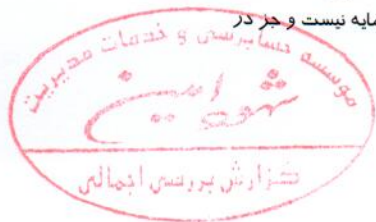 مایه نیست و جز در
موسسه حسابرسی و خدمات مدیریت
شهود امین
گزارش بررسی اجمالی